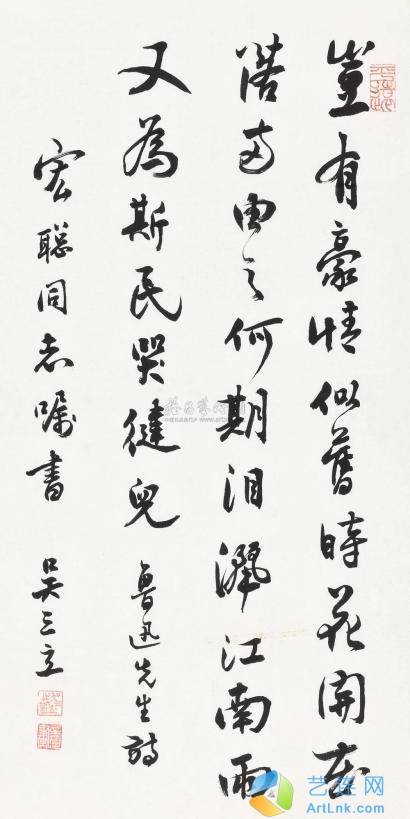 豈有豪情似舊時花開花
落兩由之何期泪灑江南雨
又為斯民哭健兒 魯迅先生詩
宏聰同志嘱書 吳三立
艺连网
ArtLnk.com